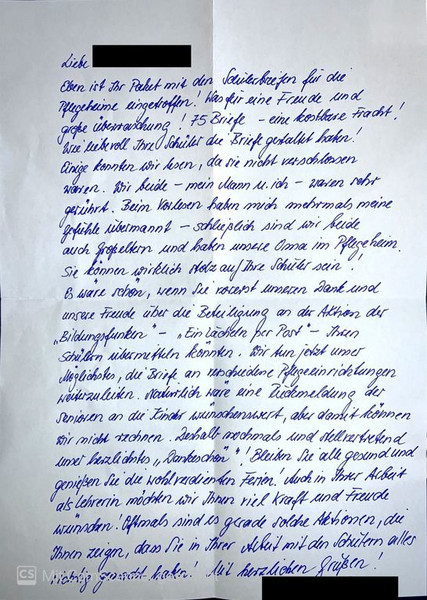 Liebe
Eben ist Ihr Paket mit den Schülerbriefen für die
Pflegeheime eingetroffen! Was für eine Freude und
große Überraschung! 75 Briefe – eine kostbare Fracht!
Wie liebevoll Ihre Schüler die Briefe gestaltet haben!
Einige konnten wir lesen, da sie nicht verschlossen
waren. Wir beide – mein Mann u. ich – waren sehr
gerührt. Beim Vorlesen haben mich mehrmals meine
Gefühle übermannt – schließlich sind wir beide
auch Großeltern und haben unsere Oma im Pflegeheim.
Sie können wirklich stolz auf Ihre Schüler sein!
Es wäre schön, wenn Sie vorerst unseren Dank und
unsere Freude über die Beteiligung an der Aktion der
„Bildungsfunken" – „Ein Lächeln per Post" – Ihren
Schülern übermitteln könnten. Wir tun jetzt unser
Möglichstes, die Briefe an verschiedene Pflegeeinrichtungen
weiterzuleiten. Natürlich wäre eine Rückmeldung der
Senioren an die Kinder wünschenswert, aber damit können
wir nicht rechnen. Deshalb nochmals und stellvertretend
unser herzlichstes „Dankeschön"! Bleiben Sie alle gesund und
genießen Sie die wohlverdienten Ferien! Auch in Ihrer Arbeit
als Lehrerin möchten wir Ihnen viel Kraft und Freude
wünschen! Oftmals sind es gerade solche Aktionen, die
Ihnen zeigen, dass Sie in Ihrer Arbeit mit den Schülern alles
richtig gemacht haben! Mit herzlichen Grüßen!
CS